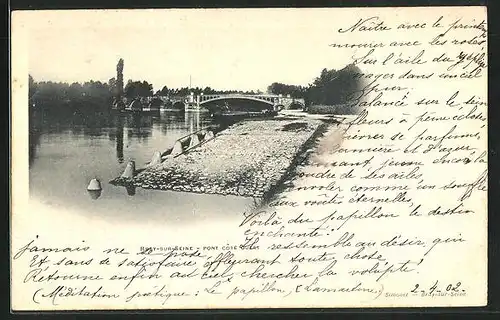 Naître avec le printemps
mourir avec les roses
Sur l'aile du zéphyr
nager dans un ciel
pur
Balancé sur le sein
des fleurs à peine écloses
S'enivrer de parfums,
de lumière et d'azur,
Secouant jeune encor la
poudre de ses ailes,
S'envoler comme un souffle
aux voûtes éternelles,
Voilà du papillon le destin
enchanté!
BRAY-SUR-SEINE - PONT CÔTÉ
Il ressemble au désir, qui
jamais ne se pose
Et sans se satisfaire, effleurant toute chose,
Retourne enfin au ciel, chercher la volupté.
(Méditation poétique: Le papillon, (Lamartine.)
2-4-02.
Bray-sur-Seine